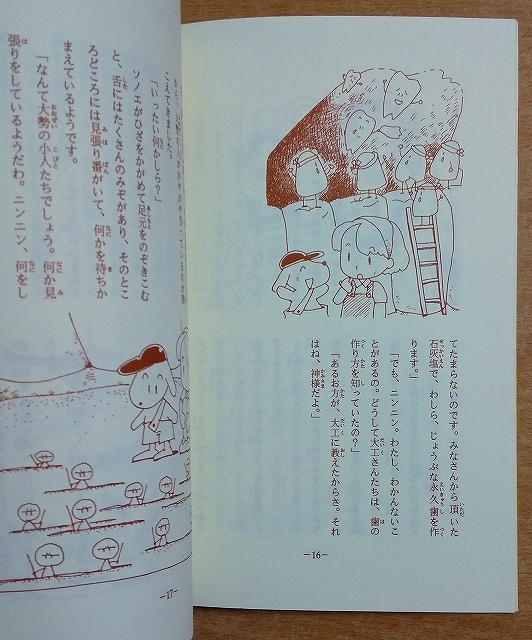 てたまらないのです。みなさんから頂いた
石灰塩で、わしら、じょうぶな永久歯を作
ります。」
「でも、ニンニン。わたし、わかんないこ
とがあるの。どうして大工さんたちは、歯の
作り方を知っていたの?」
「あるお方が、大工に教えたからさ。それ
はね、神様だよ。」
—16—
こえてきました。
「いったい何かしら?」
ソノエがひざをかがめて足元をのぞきこむ
と、舌にはたくさんのみぞがあり、そのとこ
ろどころには見張り番がいて、何かを待ちか
まえているようです。
「なんて大勢の小人たちでしょう。何か見
張りをしているようだわ。ニンニン、何をし
—17—